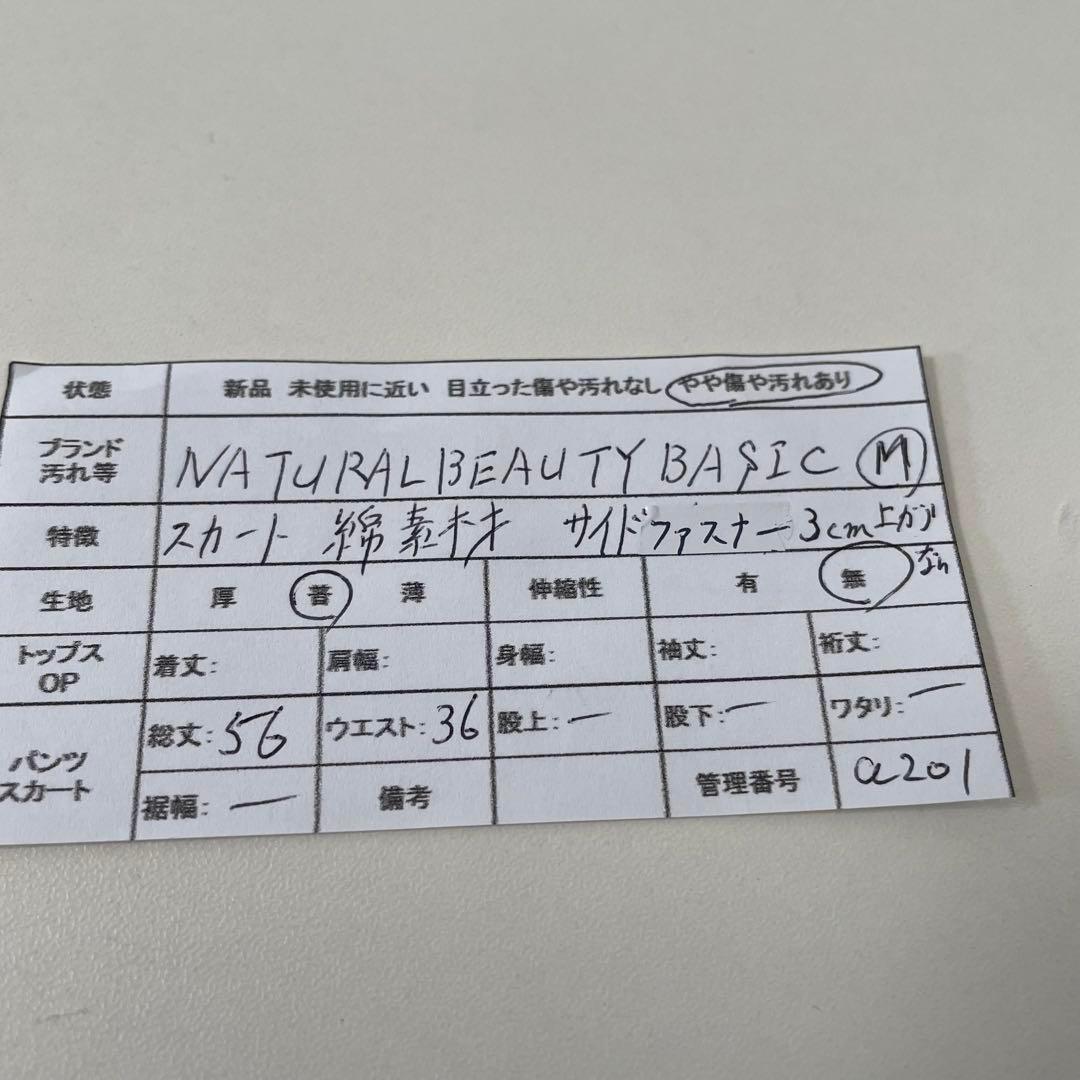 状態 新品 未使用に近い 目立った傷や汚れなし やや傷や汚れあり
ブランド
汚れ等 NATURAL BEAUTY BASIC M
特徴 スカート 綿素材 サイドファスナー3cm上がり
なり
生地 厚 普 薄 伸縮性 有 無
トップス
OP 着丈: 肩幅: 身幅: 袖丈: 裄丈:
パンツ
スカート 総丈:56 ウエスト:36 股上:ー 股下:ー ワタリ:ー
裾幅:ー 備考 管理番号 a201